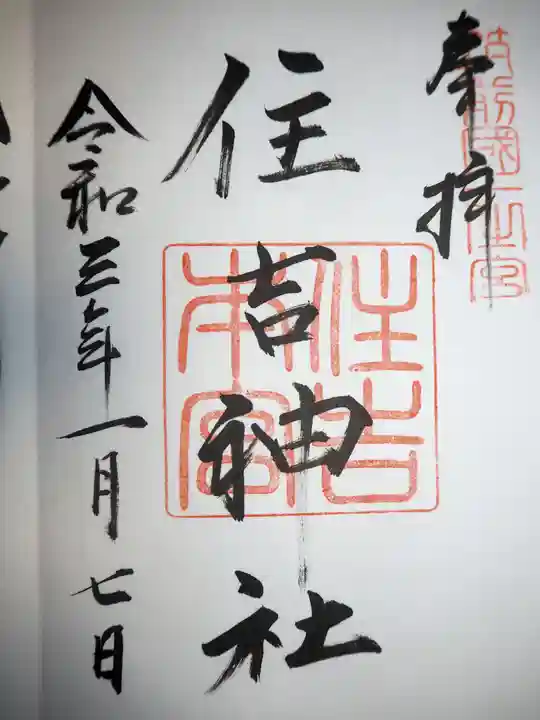 奉拝
筑前國一之宮
住吉神社
住吉
本宮
令和三年一月七日